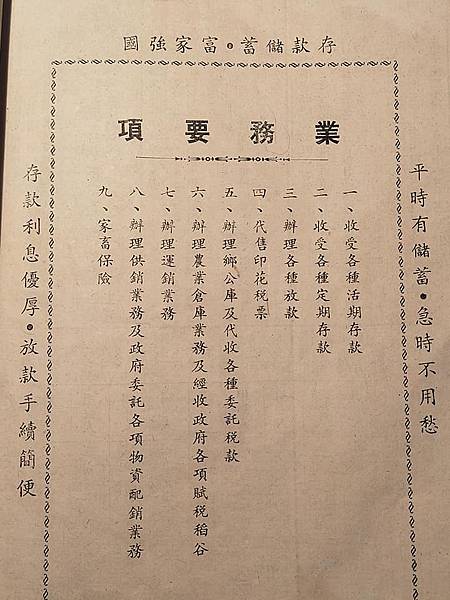 存款儲蓄•富家強國
平時有儲蓄•急時不用愁
業務要項
一、收受各種活期存款
二、收受各種定期存款
三、辦理各種放款
四、代售印花稅票
五、辦理鄉公庫及代收各種委託稅款
六、辦理農業倉庫業務及經收政府各項賦稅稻谷
七、辦理運銷業務
八、辦理供銷業務及政府委託各項物資配銷業務
九、家畜保險
存款利息優厚•放款手續簡便